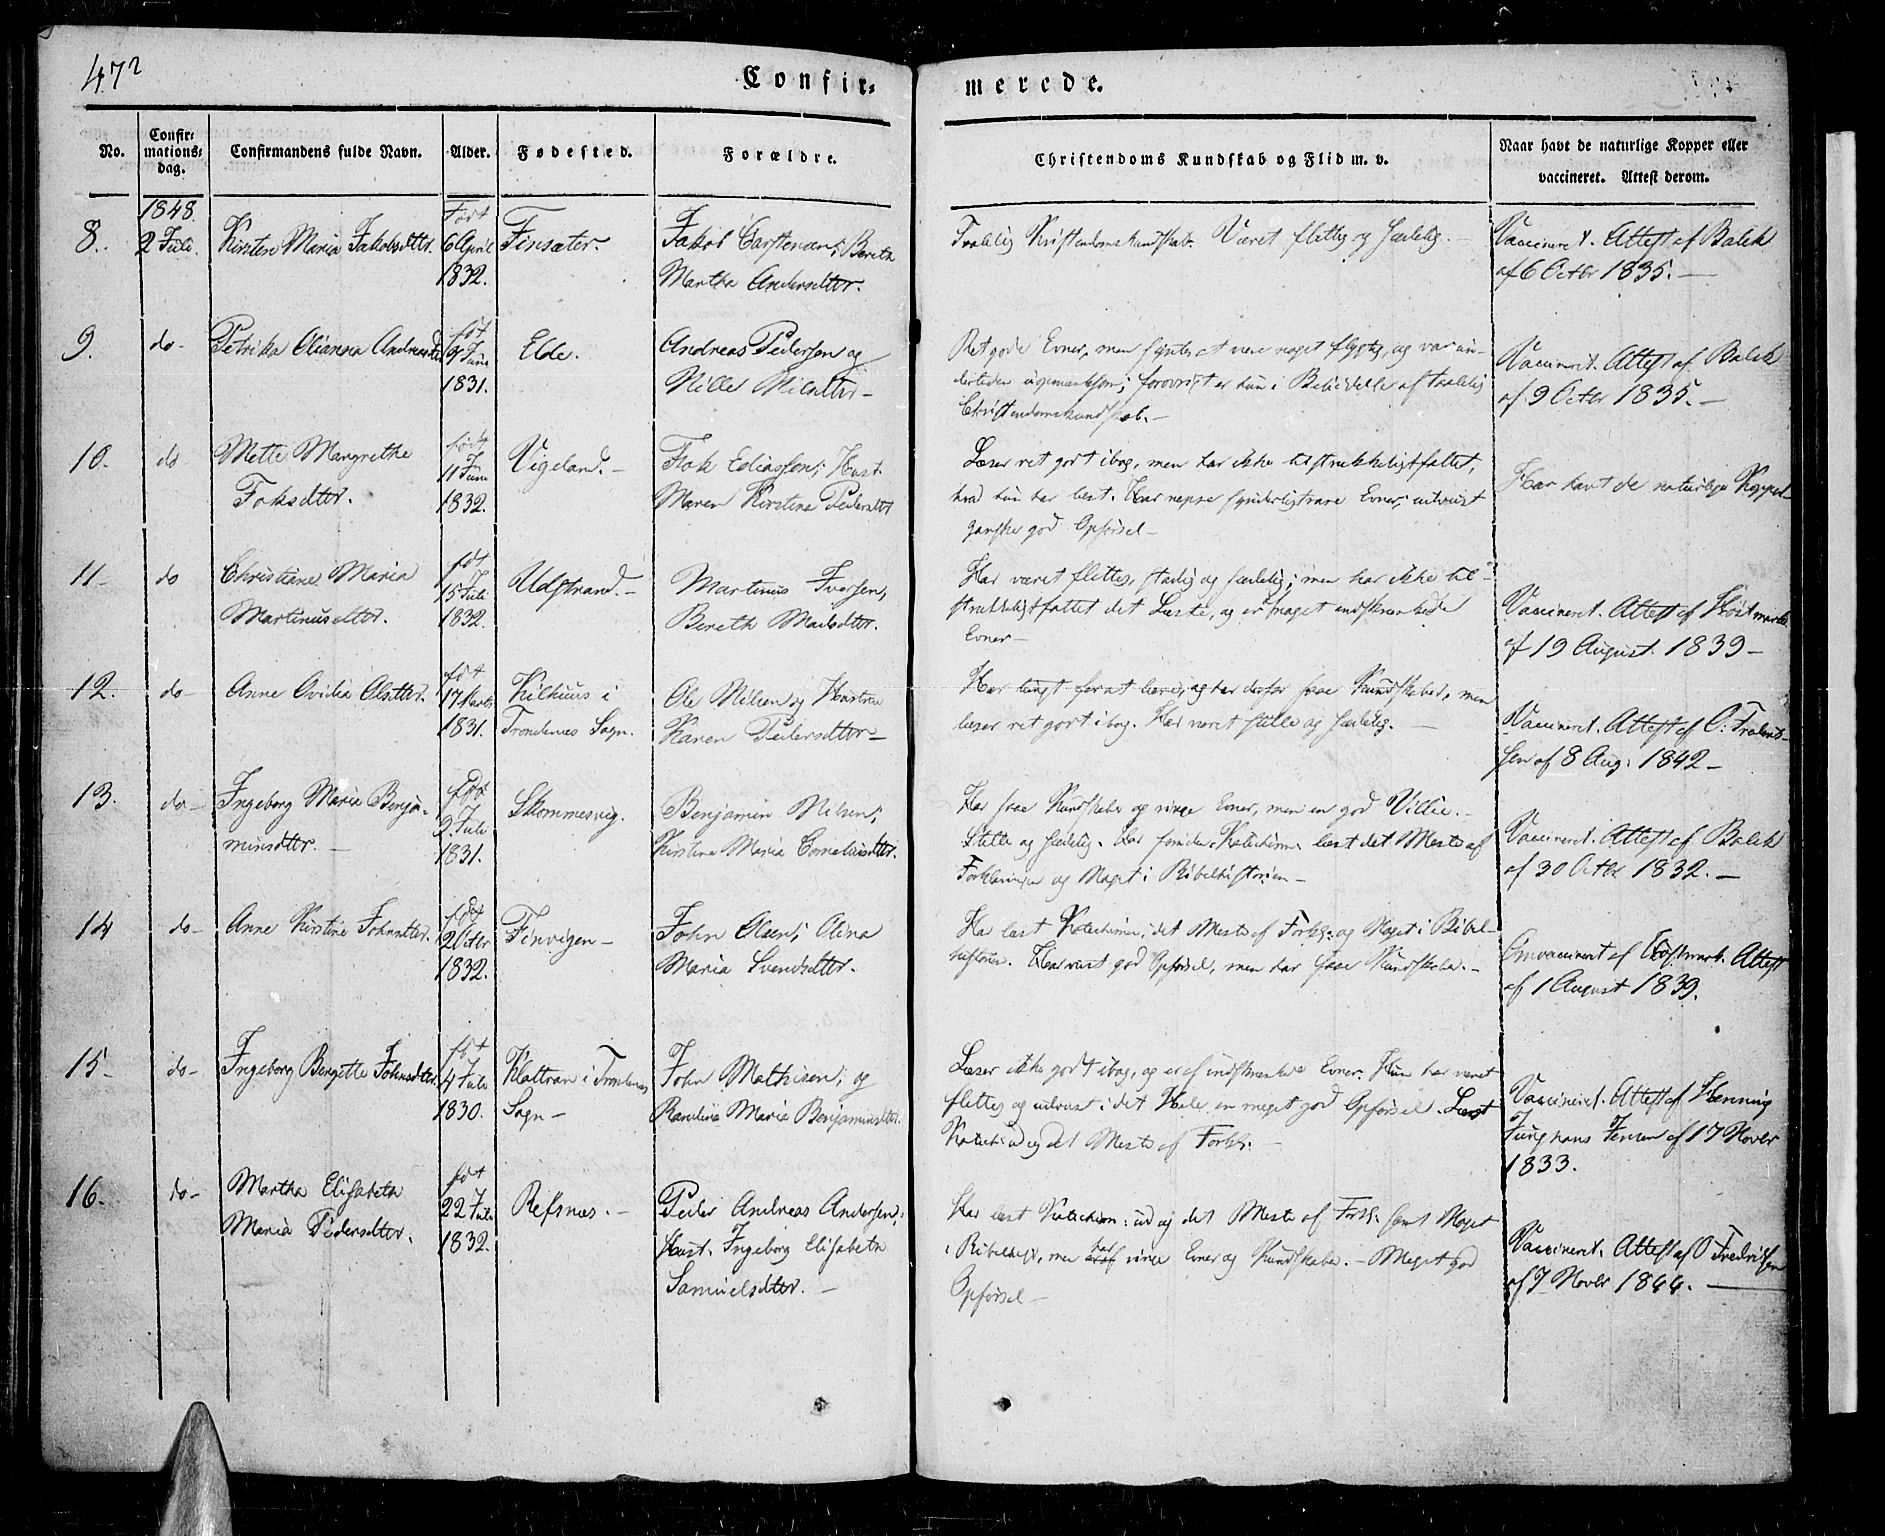 472
Confir=
merede.
No.
Confir=
mations=
dag.
Confirmandens fulde Navn.
Alder.
Fødested.
Forældre.
Christendoms Kundskab og Flid m. v.
Naar havt de naturlige Kopper eller
vaccineret. Attest derom.
1848.
8. 2 Juli. Kirsten Maria Jakobsdtter.
Født
6 April
1832.
Finsæter.
Jakob Carstensen; Bereth
Martha Andersdtter.
Taalelig Kristendomskundskab. Været flittig og sædelig. —
Vaccineret. Attest af Balck
af 6 Octbr 1835. —
9. do- Petrikka Olianna
født
9 Juni
1831.
Elde.
Andreas Pedersen og
Nille Nilsdtter —
Ret gode Evner, men synes at være noget flygtig, og var un-
derteden uopmærksom; forøvrigt er hun i Besiddelse af taalelig
Christendomskundskab. —
Vaccineret. Attest af Balck
af 9 Octbr 1835. —
10. do Mette Margrethe
Foksdtter.
født
11 Juni
1832.
Vigeland. —
Fok Eliassen; Hust.
Maren Kirstine Pedersdtt
Læser ret godt ibog, men har ikke tilstrækkeligt fattet,
hvad hun har læst. Har neppe synderligt rare Evner; udviist
ganske god Opførsel —
Har havt de naturlige Kopper
11- do Christiane Maria
Martinusdtter.
født
15 Juli
1832.
Udstrand. —
Martinus Iversen,
Bereth Madsdtter.
Har været flittig, stadig og sædelig; men har ikke til-
strækkeligt fattet det Læste, og er meget indskrænkede
Evner —
Vaccineret. Attest af Kostmark.
af 19 August 1839 —
12. do- Anne Ovidia Olsdtter.
født
17 Marts
1831.
Kilhuus i
Trondenes Sogn.
Ole Nilsen og Hustrue
Karen Pedersdtter —
Har tungt for at lære, og har derfor faae Kundskaber, men
læser ret godt ibog. Har været stille og sædelig. —
Vaccineret. Attest af O.
sen af 8 Aug: 1842 —
13. do- Ingeborg Maria Benja-
minsdtter. —
født
2 Juli
1831.
Skommesvig.
Benjamin Nilsen;
Kirstine Maria Corneliusdtter.
Har faae Kundskaber og ringe Evner, men en god Villie. —
Stille og sædelig. Har foruden Katechism. læst det Meste af
Forklaringen og Noget i Bibelhistorien —
Vaccineret. Attest af Balck
af 30 Octbr 1832. —
14 do- Anne Kirstine Johnsdtter.
født
12 Octbr
1832.
Finvigen —
John Olsen; Olina
Maria Svendsdtter.
Har læst Katechismen, det Meste af Forkl: og Noget i Bibel-
historien. Har viist god Opførsel, men har faae Kundskaber. —
Omvaccineret af Kostmark. Attest
af 1 August 1839.
15- do- Ingeborg Bergette Johnsdtter.
født
4 Juli
1830.
Klattran i Trondenes
Sogn —
John Mathisen; og
Maria Benjaminsdtter.
Læser ikke godt ibog, og er af indskrænkede Evner. Hun har været
flittig og udviist i det Hele en meget god Opførsel. Læst
Katech: ud og det Meste af Forkl: —
Vaccineret. Attest af Henning
Junghans Jensen af 17 Novbr
1833.
16. do- Martha Elisabeth
Maria Pedersdtter.
født
22 Juli
1832.
Refsnæs. —
Peder Andreas Andersen;
Hust. Ingeborg Elisabeth
Samuelsdtter. —
Har læst Katechism: ud og det Meste af Forkl: samt Noget
i Bibelhist, men har ringe Evner og Kundskaber. — Meget god
Opførsel —
Vaccineret. Attest af O Fredriksen
af 7 Novbr 1844. —